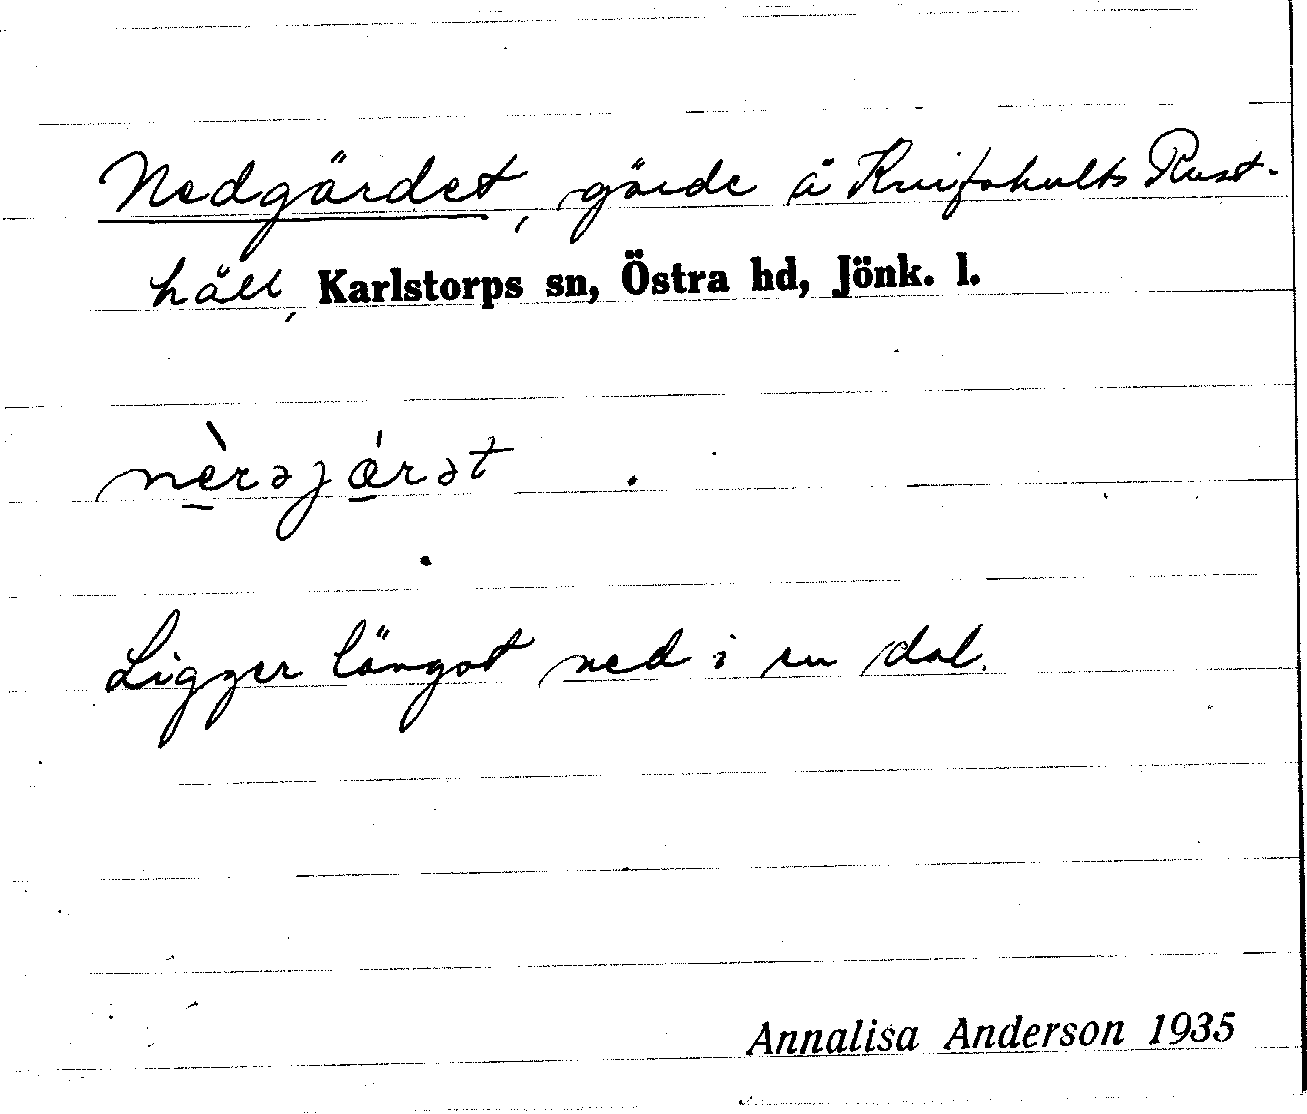 Nedgärdet, gärde å Knifshults Rust-
håll, Karlstorps sn, Östra hd, Jönk. l.
nèrəjárət
Ligger längst ned i en dal.
Annalisa Anderson 1935